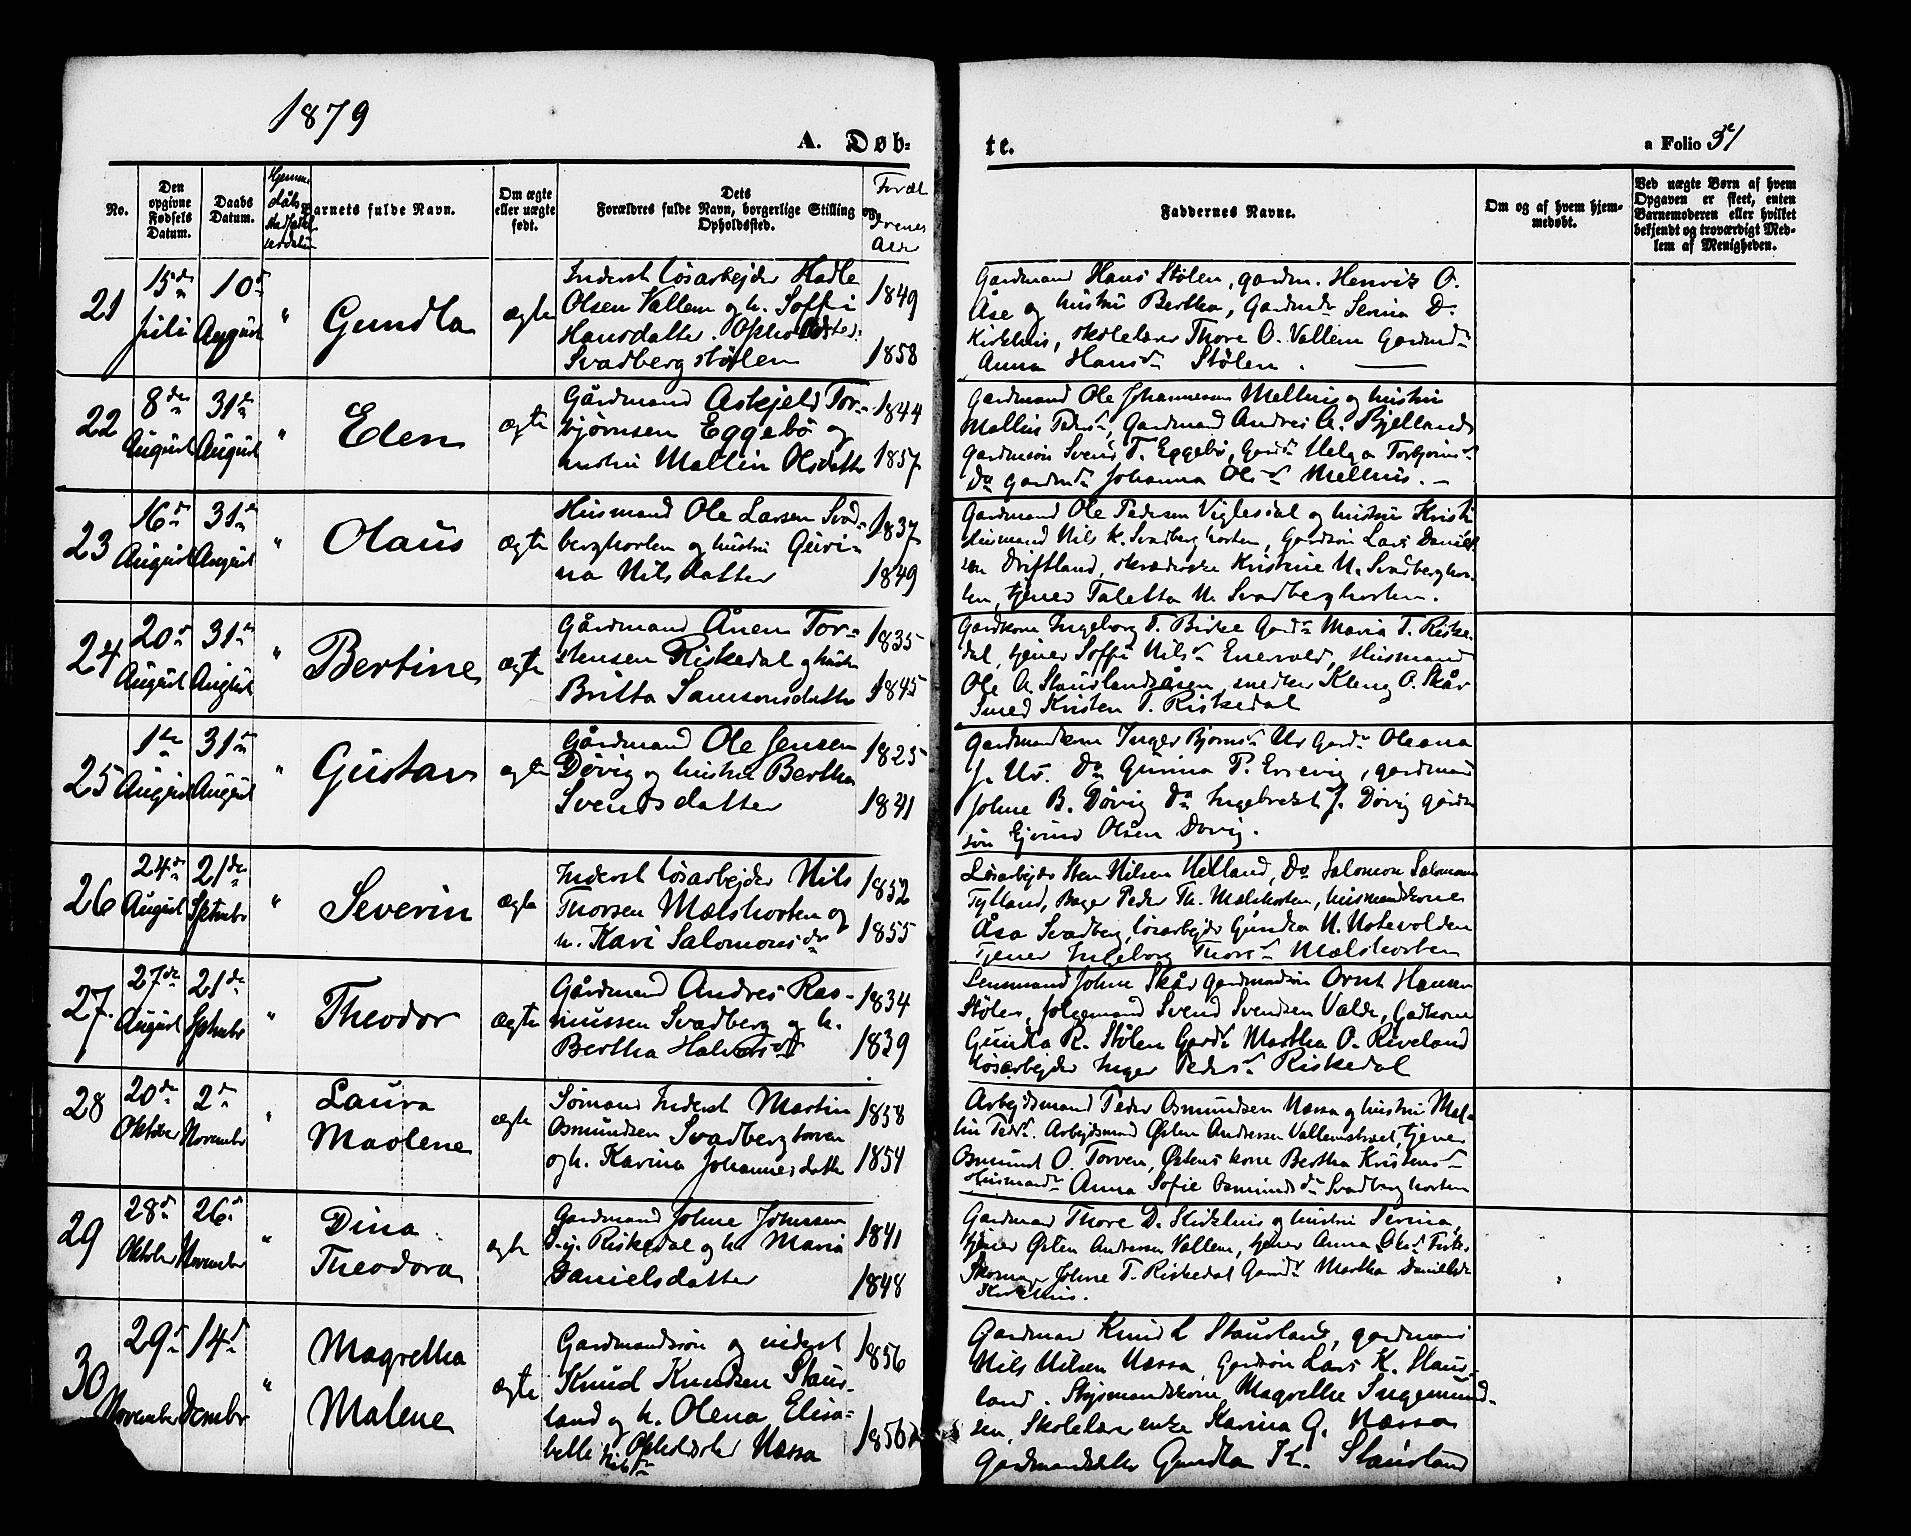 1879
A. Døb-
te.
a Folio 51
No.
Den opgivne Fødsels Datum.
Daabs Datum.
Barnets fulde Navn.
Om ægte eller uægte født.
Dets Forældres fulde Navn, borgerlige Stilling og Opholdssted.
Foræl
drenes
Alder
Faddernes Navne.
Om og af hvem hjemmedøbt.
Ved uægte Børn af hvem Opgaven er skeet, enten Barnemoderen eller hvilket bekjendt og troværdigt Medlem af Menigheden.
21
15de Juli
10de August
"
Gundla
ægte
Inderst løsarbejder Hadle
Olsen Vallem og h. Soffi
Hansdatter. Opholdsted:
Svadbergstølen
1849
1858
Gardmand Hans Stølen, gardm. Henrik O.
Åse og hustru Bertha, Gardmd. Serina D.
Kirkhus, skolelærer Thore O. Vallem Gardmd.
Anna Hansd. Stølen.
22
8de August
31te August
"
Eden
ægte
Gårdmand Askjeld Tor-
bjørnsen Eggebø og
hustru Mallin Olsdatter
1844
1857
Gardmand Ole Johannesen Mellius og hustru
Mallin Pedersd., Gardmand Andres A. Bjelland
gardmson Svend T. Eggebø, Gardd. Helga Torbjørnsd.
Do gardmd. Johanna Olsd. Mellius. –
23
16de August
31te August
"
Olaus
ægte
Husmand Ole Larsen Svad-
berghorten og hustru Guri-
na Nilsdatter
1837
1849
Gardmand Ole Pedersen Viglesdal og hustru Kristi
Husmand Nils K. Svadberghorten, Gardsøn Lars Daniel-
sen Driftland, Kristine N. Svadberghor-
ten, tjener Taletta N. Svadberghorten.
24
20de August
31te August
"
Bertine
ægte
Gårdmand Ånen Tor-
stensen Riskedal og hustru
Britta Samsonsdatter
1835
1845
Gardkone Ingeborg T. Birke Gardd. Maria T. Riske-
dal, tjener Soffi Nilsd. Enervold, Husmand
Ole A. Staurlandsåsen, snedker Kleng O. Skår
Smed Kristen T. Riskedal
25
1te August
31te August
"
Gustav
ægte
Gårdmand Ole Jensen
Døvig og hustru Bertha
Svendsdatter
1825
1831
Gardmandkone Inger Bjørnsd. Ur Gardd. Oleana
J. Ur. Do Gurina P. Ersevig, gardmand
Johne B. Døvig Do Ingebret J. Døvig gård-
søn Ejvind Olsen Døvig.
26
24de August
21de Septembr
"
Severin
ægte
Inderst løsarbejder Nils
Thorsen Mælshorten og
h. Kari Salomonsdr
1852
1855
Løsarbejder Sten Nilsen Helland, Do Salomon Salomons
Tytland, Bager Peder Th. Mælshorten, husmandkone
Åsa Svadberg, løsarbejder Gundla N. Notevolden
Tjener Ingeborg Thorsd. Mælshorten
27.
27de August
21de Septmbr
"
Theodor
ægte
Gårdmand Andres Ras-
mussen Svadberg og h.
Bertha Halvorsdtt
1834
1839
Lensmand Johne Skår gardmandsøn Ornt Hansen
Stølen, folgemand Svend Svendsen Valde, Gadkone
Gundla R. Stølen Gardd. Martha O. Riveland
løsarbejder Inger Pedersd. Riskedal
28
20de Oktober
2den November
"
Laura
Maolene
ægte
Sømand Inderst Martin
Osmundsen Svadbergtorven
og h. Karina Johannesdatter
1858
1854
Arbejdsmand Peder Osmundsen Næssa og hustru Mal-
lin Pedersd. Arbejdsmand Østen Andersen Vallemstræet, tjener
Osmund O. Torven, Østens kone Bertha Kristensd.
Husmandd. Anna Sofie Osmundsdr Svadberghorten
29
28de Oktober
26de November
"
Dina
Theodora
ægte
Gardmand Johne Johnsen
Riskedal og h. Maria
Danielsdatter
1841
1848
Gardmand Thore D. Kirkhus og hustru Serina,
tjener Østen Andersen Vallem, tjener Anna Olsd.
Skomager Johne T. Riskedal Gardd. Martha Danielsdr
Kirkhus.
30
29de November
14de Desembr
"
Magretha
Malene
ægte
Gardmandssøn og inderst
Knud Knudsen Staur-
land og h. Olena Elisa-
beth Nilsdr Opholdsted Næssa
1856
1856
Gardman Knud L Staurland, gardmand
Nils Nilsen Næssa, Gardsøn Lars K. Staur-
land. Magrethe Ingemund-
sen, Skolelærerenke Karina G. Næssa
Gardmandsdatter Gundla K. Staurland